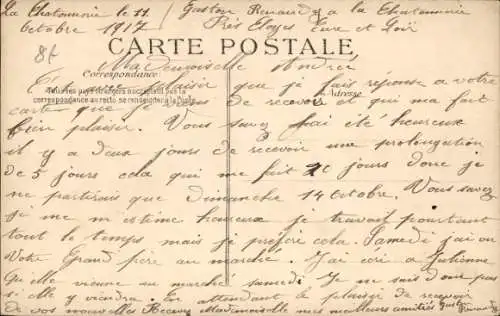 La Chatonnerie le 11 Octobre 1917
Gaston Renaud à la Chatonnerie
Près Eloyes Eure et Loir
8f
CARTE POSTALE
Mademoiselle Andrée
Correspondance
Adresse
Tous les pays étrangers n'acceptent pas la
correspondance au recto se renseigner à la Poste
plaisir que je fais réponse a votre
carte que je de recevoir et qui ma fait
bien plaisir. Vous savez j'ai été heureux
il y a deux jours de recevoir une prolongation
de 5 jours cela qui me fait 20 jours donc je
ne partirais que Dimanche 14 Octobre. Vous savez
je me m'estime heureux je travail pourtant
tout le temps mais je préfère cela. Samedi j'ai vu
Votre Grand père au marche. J'ai ecri a Julienne
Qu'elle vienne au marche samedi Je ne sais donc pas
si elle y viendra. En attendant le plaisir de recevoir
de vos nouvelles Recevez Mademoiselle mes meilleurs amitiés Gaston
Renaud